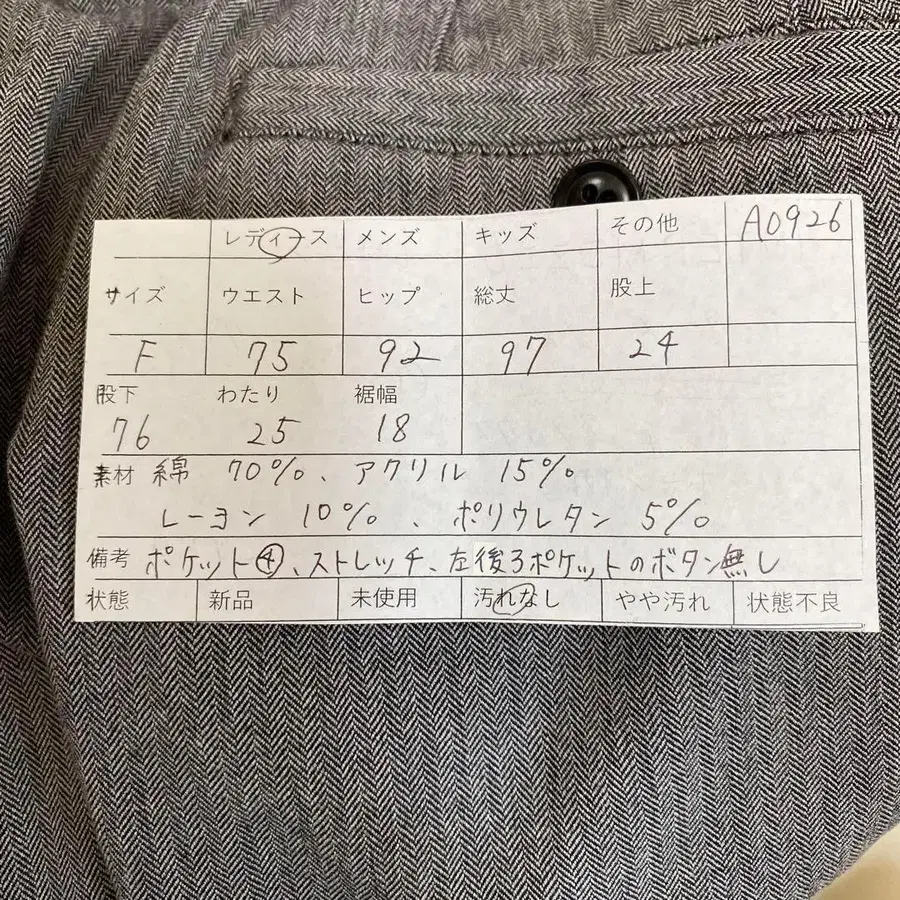 レディース メンズ キッズ その他 A0926
サイズ ウエスト ヒップ 総丈 股上
F 75 92 97 24
股下 わたり 裾幅
76 25 18
素材 綿 70%、アクリル 15%
レーヨン 10%、ポリウレタン 5%
備考 ポケット④、ストレッチ、左後ろポケットのボタン無し
状態 新品 未使用 汚れなし やや汚れ 状態不良